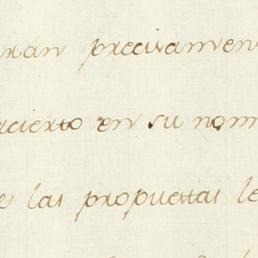 rán precisamen
acierto en su nom
e las propuestas le